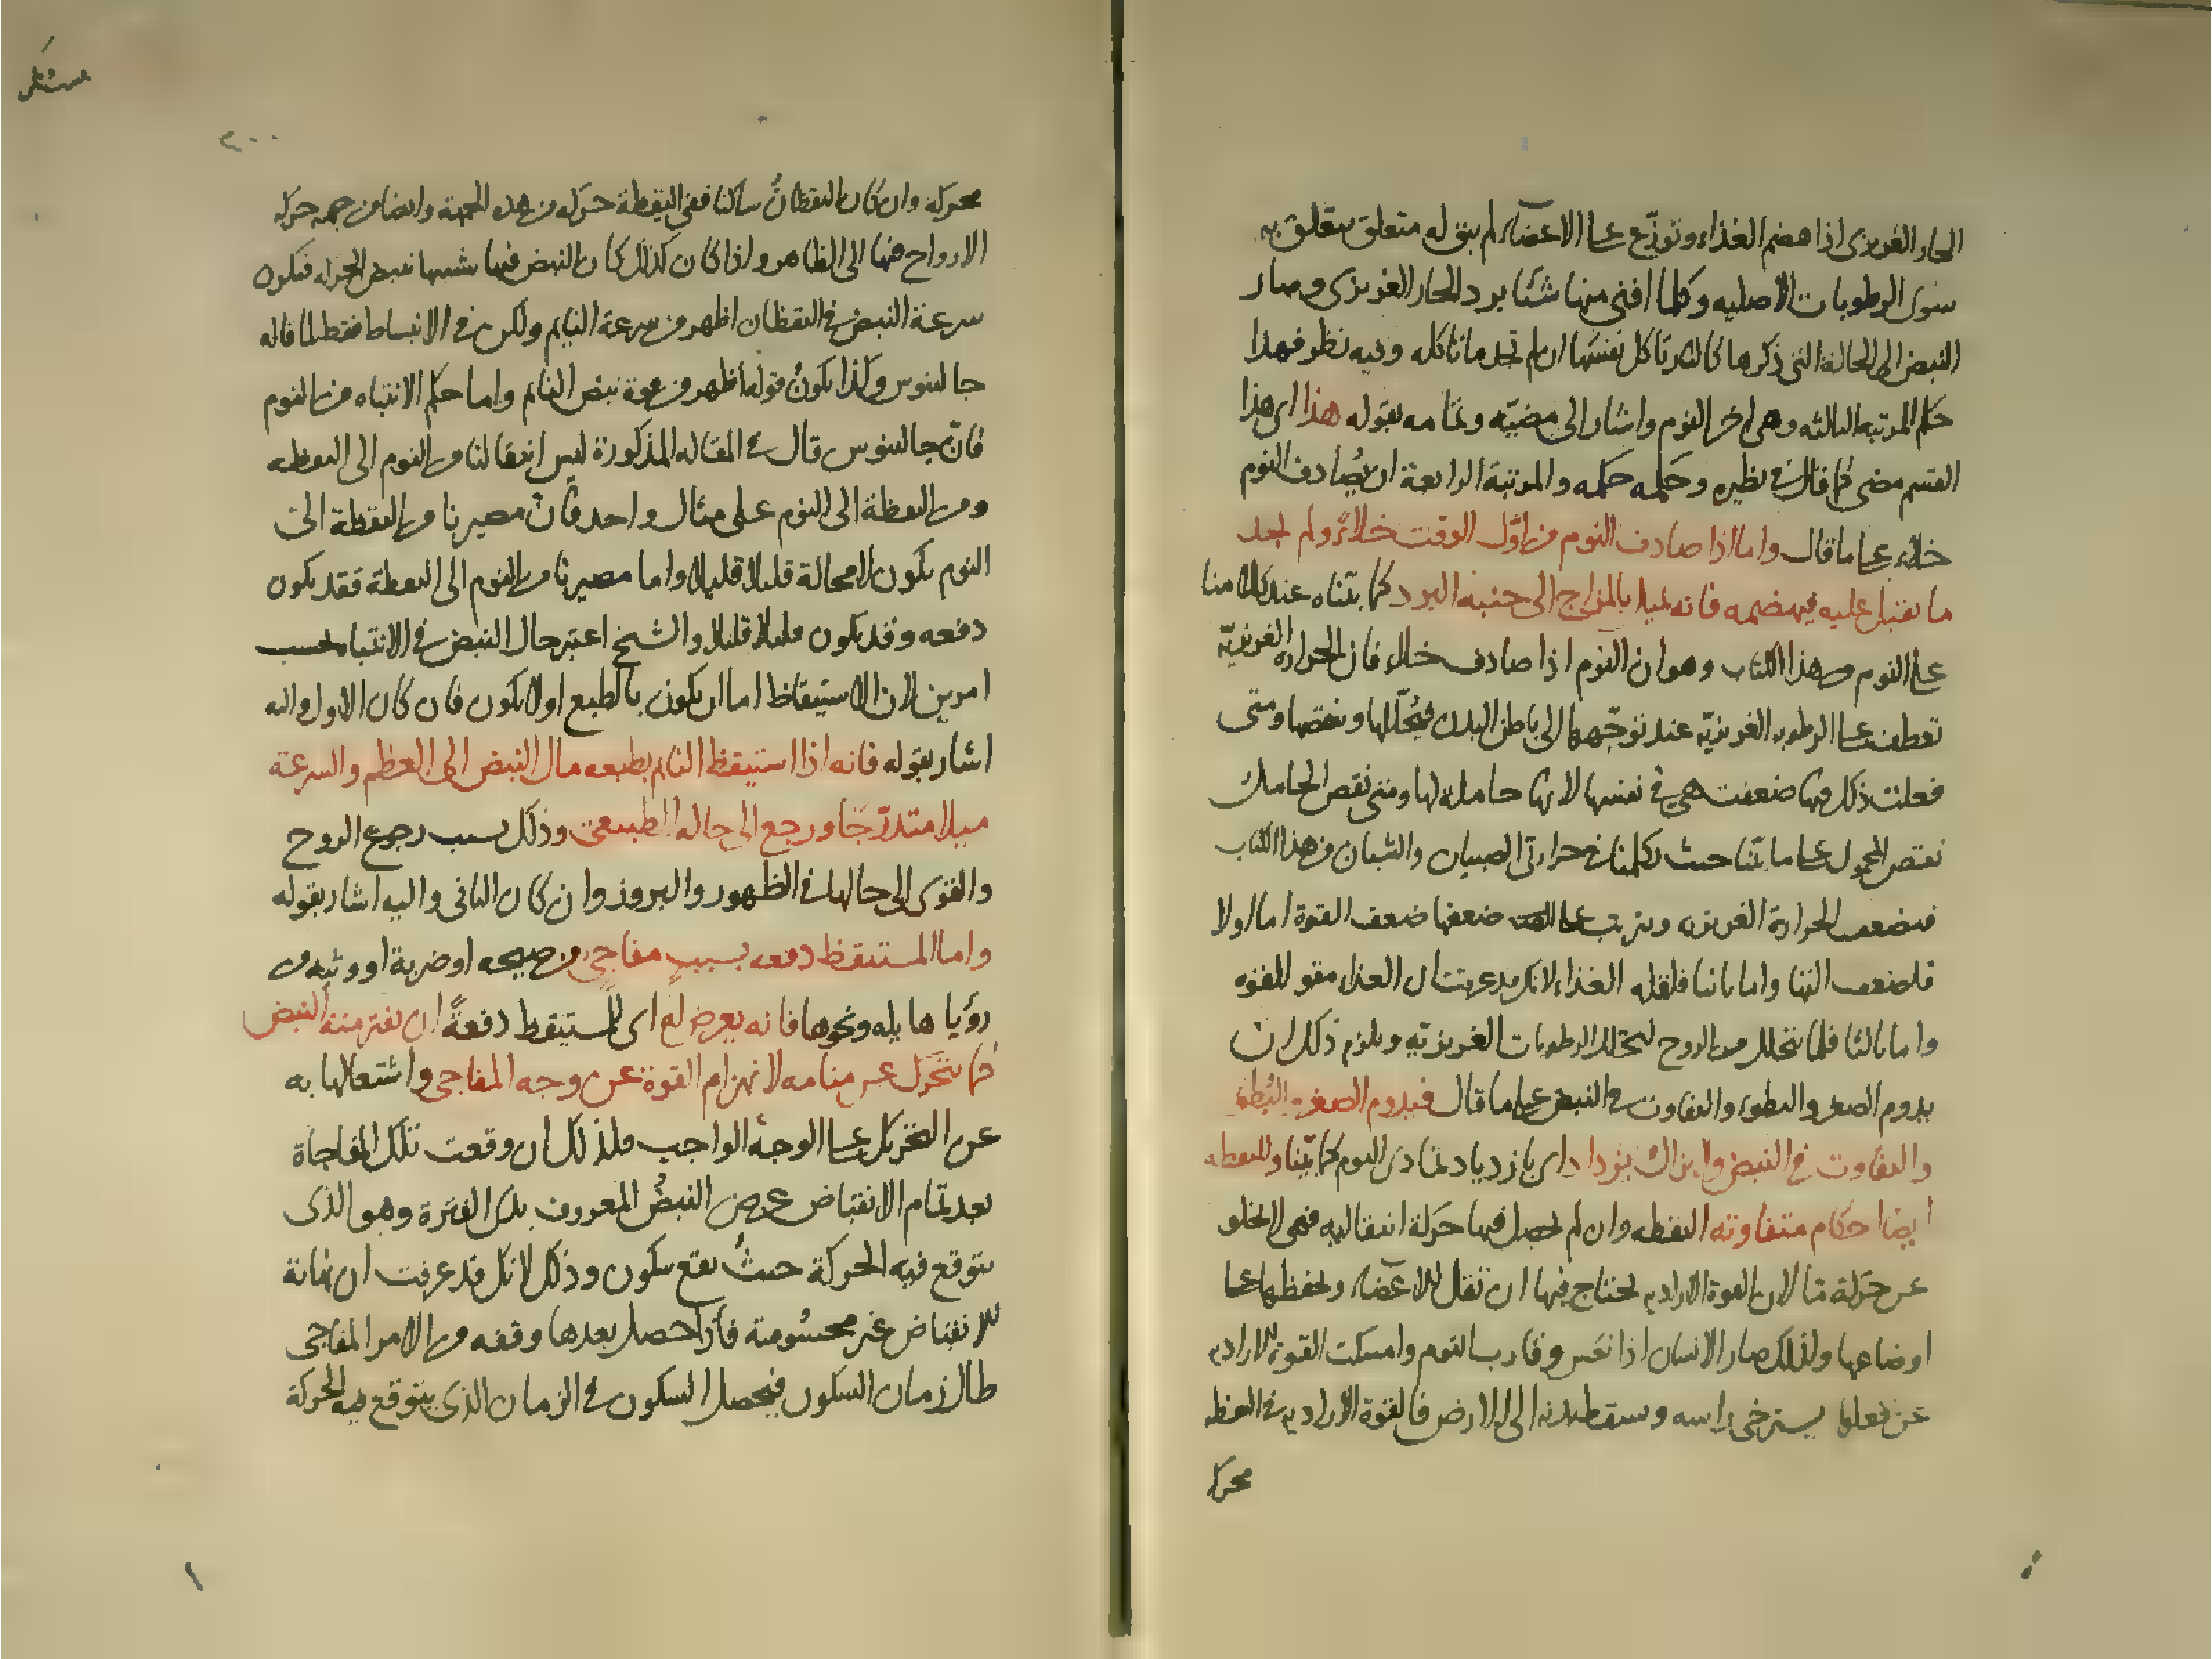 الحار الغريزى اذا هضم الغذاء وتوزّع على الاعضاء لم يبق له متعلق يتعلق به
سوى الرطوبات الاصليه وكلما افنى منها شيئا برد الحار الغريزى وصار
النبض الى الحالة التى ذكرها كالنار تاكل نفسها ان لم تجد ما تاكله وفيه نظر فهذا
حكم المرتبه الثالثه وهى اخر النوم واشار الى مضيّه وتمامه بقوله هذا اى هذا
القسم مضى كما قال فى نظيره وحكمه حكمه والمرتبة الرابعة ان يُصادف النوم
خلاء على ما قال واما اذا صادف النوم من اوّل الوقت خلاءً ولم يجد
ما يقبل عليه فيهضمه فانه يميل بالمزاج الى جنبه البرد كما بيّناه عند كلامنا
على النوم من هذا الكتاب وهو ان النوم اذا صادف خلاء فان الحرارة الغريزيّة
تعطف على الرطوبه الغريزيّة عند توجّهها الى باطن البدن فيُحلّلها وينقصها ومتى
فعلت ذلك فيها ضعفت هى فى نفسها لانها حاملة لها ومتى نقص الحامل
نقص المحمول على ما بيّنا حيث تكلمنا فى حرارتى الصبيان والشبان من هذا الكتاب
فيضعف الحرارة الغريزيه ويترتب على ضعفها ضعف القوة اما اولا
فلضعف التها واما ثانيا فلقلة الغذاء لانك قد عرفت ان الغذاء مقو للقوه
واما ثالثا فلما يتحلل من الروح لتحلل الرطوبات الغريزيّه ويلزم ذلك ان
يدوم الصغر والبطوء والتفاوت فى النبض على ما قال فيدوم الصغر والبُطوء
والتفاوت فى النبض ولا يزال يزداد اى بازدياد تمادى النوم كما بيّنا ولليقظه
ايضا احكام متفاوته اليقظه وان لم تحصل فيها حركة انتقاليه فهى لا تخلو
عن حركة ما لان القوة الاراديه تحتاج فيها ان تقل الاعضاء وتحفظها على
اوضاعها ولذلك صار الانسان اذا نعس وقارب النوم وامسكت القوة الاراديه
عن فعلها يسترخى راسه وسقط بدنه الى الارض فالقوة الاراديه فى اليقظه
محركه
٢٠٠
محركة وان كان اليقظانُ ساكنا ففى اليقظة حركه من هذه الجهة وايضا من جهه حركه
الارواح فيها الى الظاهر واذا كان كذلك كان النبض فيها شبيها بنبض الحركه فتكون
سرعة النبض فى اليقظان اظهر من سرعة النايم ولكن فى الانبساط فقط لما قاله
جالينوس وكذا تكونُ قوته اظهر من قوة نبض النايم واما حكم الانتباه من النوم
فانّ جالينوس قال فى المقاله المذكورة ليس انتقالنا من النوم الى اليقظه
ومن اليقظة الى النوم على مثال واحد فان مصيرنا من اليقظة الى
النوم يكون لا محالة قليلا قليلا واما مصيرنا من النوم الى اليقظة فقد يكون
دفعه وقد يكون قليلا قليلا والشيخ اعتبر حال النبض فى الانتباه بحسب
امرين لان الاستيقاظ اما ان يكون بالطبع او لا يكون فان كان الاول واليه
اشار بقوله فانه اذا استيقظ النايم بطبعه مال النبض الى العظم والسرعة
ميلا متدرّجًا ورجع الى حاله الطبيعى وذلك بسبب رجوع الروح
والقوى الى حالها فى الظهور والبروز وان كان الثانى واليه اشار بقوله
واما المستيقظ دفعه بسببٍ مفاجى من صيحه او ضربة او وثبه من
رؤيا هايله ونحوها فانه يعرض له اى للمستيقظ دفعةً ان يفتر منه النبض
كما يتحرّك عن منامه لانهزام القوة عن وجه المفاجى واشتغالها به
عن التحريك على الوجه الواجب فلذلك ان وقعت تلك المفاجاة
بعد تمام الانقباض عرض النبضُ المعروف بذى الفترة وهو الذى
يتوقع فيه الحركة حيثُ يقع سكون وذلك لانك قد عرفت ان نهاية
الانقباض غير محسُوسة فاذا حصل بعدها وقفه من الامر المفاجى
طال زمان السكون فيحصل السكون فى الزمان الذى يتوقع فيه الحركة